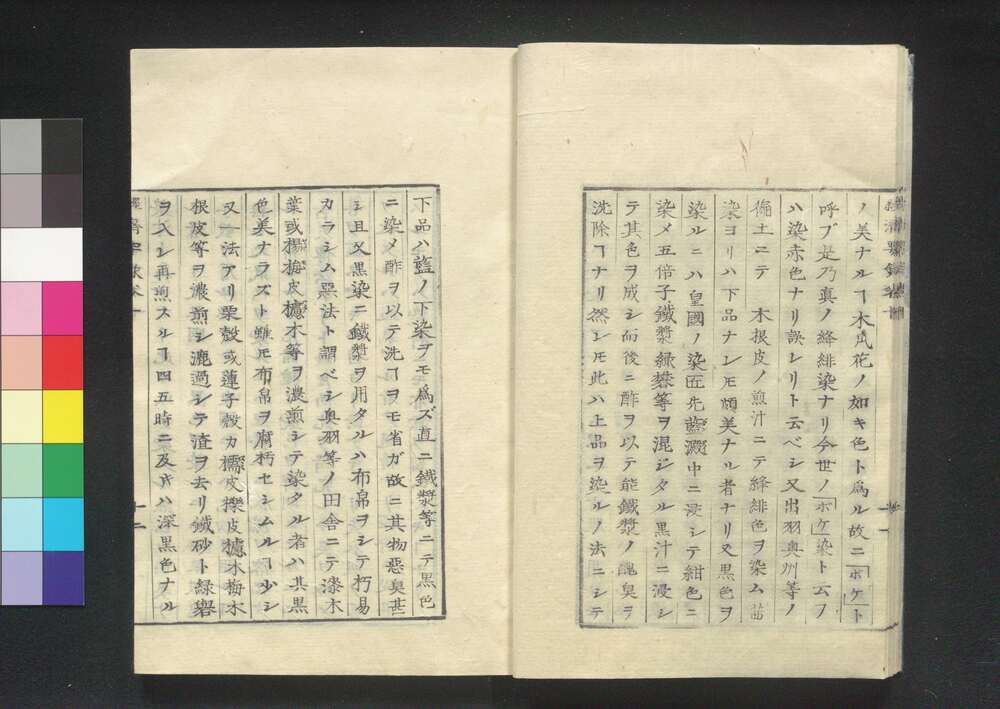 ノ美ナルヿ木瓜花ノ如キ色ト爲ル故ニ「ボケ」ト
呼ブ是乃真ノ絳緋染ナリ今世ノ「ボケ」染ト云フ
ハ染赤色ナリ誤レリト云ベシ又出羽奥州等ノ
土ニテ 木根皮ノ煎汁ニテ絳緋色ヲ染ム茜
染ヨリハ下品ナレ𪜈頗美ナル者ナリ又黒色ヲ
染ルニハ皇國ノ染匠先藍澱中ニ浸シテ紺色ニ
染メ五倍子鐵漿緑礬等ヲ混ジタル黒汁ニ浸シ
テ其色ヲ成シ而後ニ酢ヲ以テ能鐵漿ノ醜臭ヲ
洗除ヿナリ然レ𪜈此ハ上品ヲ染ルノ法ニシテ
下品ハ藍ノ下染ヲモ爲ズ直ニ鐵漿等ニテ黒色
ニ染メ酢ヲ以テ洗ヿヲモ省ガ故ニ其物惡臭甚
シ且又黒染ニ鐵漿ヲ用タルハ布帛ヲシテ朽易
カラシム惡法ト謂ベシ奥羽等ノ田舎ニテ漆木
葉或楊梅皮櫨木等ヲ濃煎シテ染タル者ハ其黒
色美ナラズト雖𪜈布帛ヲ腐朽セシムルヿ少シ
又一法アリ栗殻或蓮子殻カ皮檪皮櫨木梅木
根皮等ヲ濃煎シ漉過シテ渣ヲ去リ鐵砂ト緑礬
ヲ入レ再煎スルヿ四五時ニ及𬼀ハ深黒色ナル
十一
十二